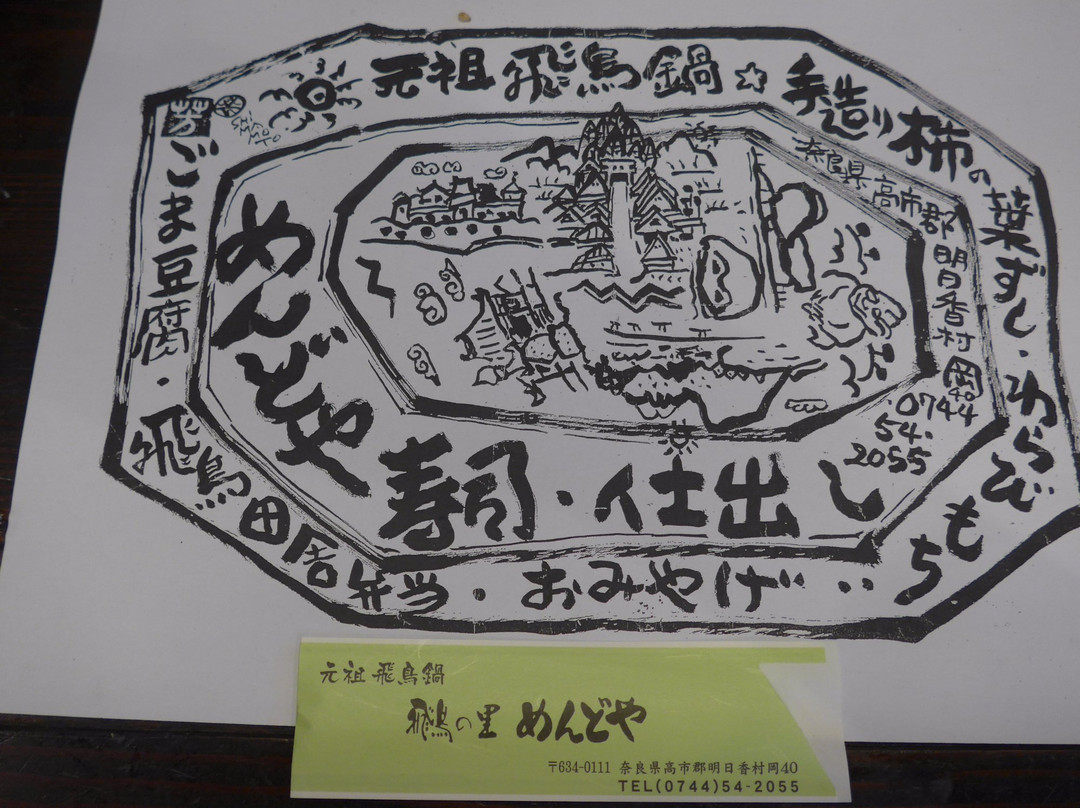 元祖 飛鳥鍋☆手造り柿の葉ずし・わらびもち
芳
SHIROMOTO
ごま豆腐・飛鳥田舎弁当・おみやげ・・
奈良県高市郡明日香村岡40
0744
54.
2055
めんどや
寿司・仕出し
元祖 飛鳥鍋
飛鳥の里 めんどや
〒634-0111 奈良県高市郡明日香村岡40
TEL(0744)54-2055